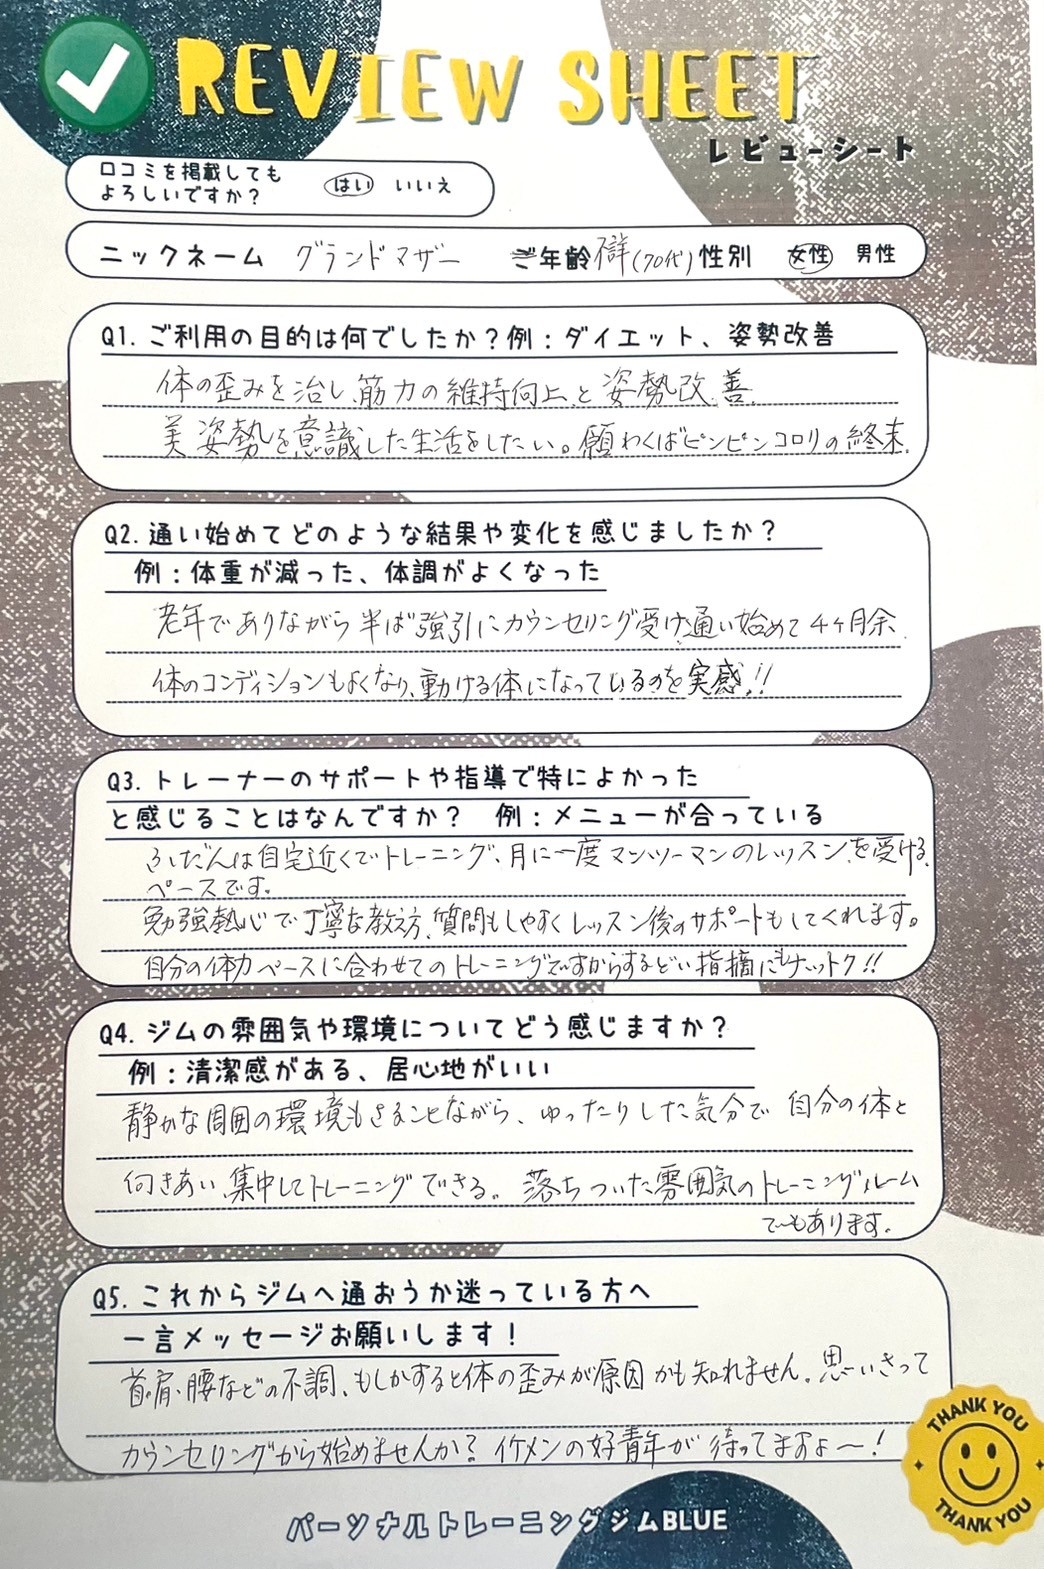 REVIEW SHEET
レビューシート
口コミを掲載しても
よろしいですか？ はい いいえ
ニックネーム グランドマザー ご年齢 (70代) 性別 女性 男性
Q1. ご利用の目的は何でしたか？例：ダイエット、姿勢改善
体の歪みを治し、筋力の維持向上、と姿勢改善、
美姿勢を意識した生活をしたい。願わくばピンピンコロリの終末、
Q2. 通い始めてどのような結果や変化を感じましたか？
例：体重が減った、体調がよくなった
老年でありながら半ば強引にカウンセリング受け、通い始めて4ヶ月余、
体のコンディションもよくなり、動ける体になっているのを実感!!
Q3. トレーナーのサポートや指導で特によかった
と感じることはなんですか？ 例：メニューが合っている
ふだんは自宅近くでトレーニング、月に一度マンツーマンのレッスンを受ける
ペースです。
勉強熱心で丁寧な教え方、質問もしやすくレッスン後のサポートもしてくれます。
自分の体力ペースに合わせてのトレーニングですからするどい指摘にもナットク!!
Q4. ジムの雰囲気や環境についてどう感じますか？
例：清潔感がある、居心地がいい
静かな周囲の環境もさることながら、ゆったりした気分で 自分の体と
向きあい、集中してトレーニングできる。 落ちついた雰囲気のトレーニングルーム
でもあります。
Q5. これからジムへ通おうか迷っている方へ
一言メッセージお願いします！
首、肩、腰などの不調、もしかすると体の歪みが原因かも知れません。思いきって
カウンセリングから始めませんか？ イケメンの好青年が 待ってますよ〜！
THANK YOU
THANK YOU
パーソナルトレーニングジムBLUE